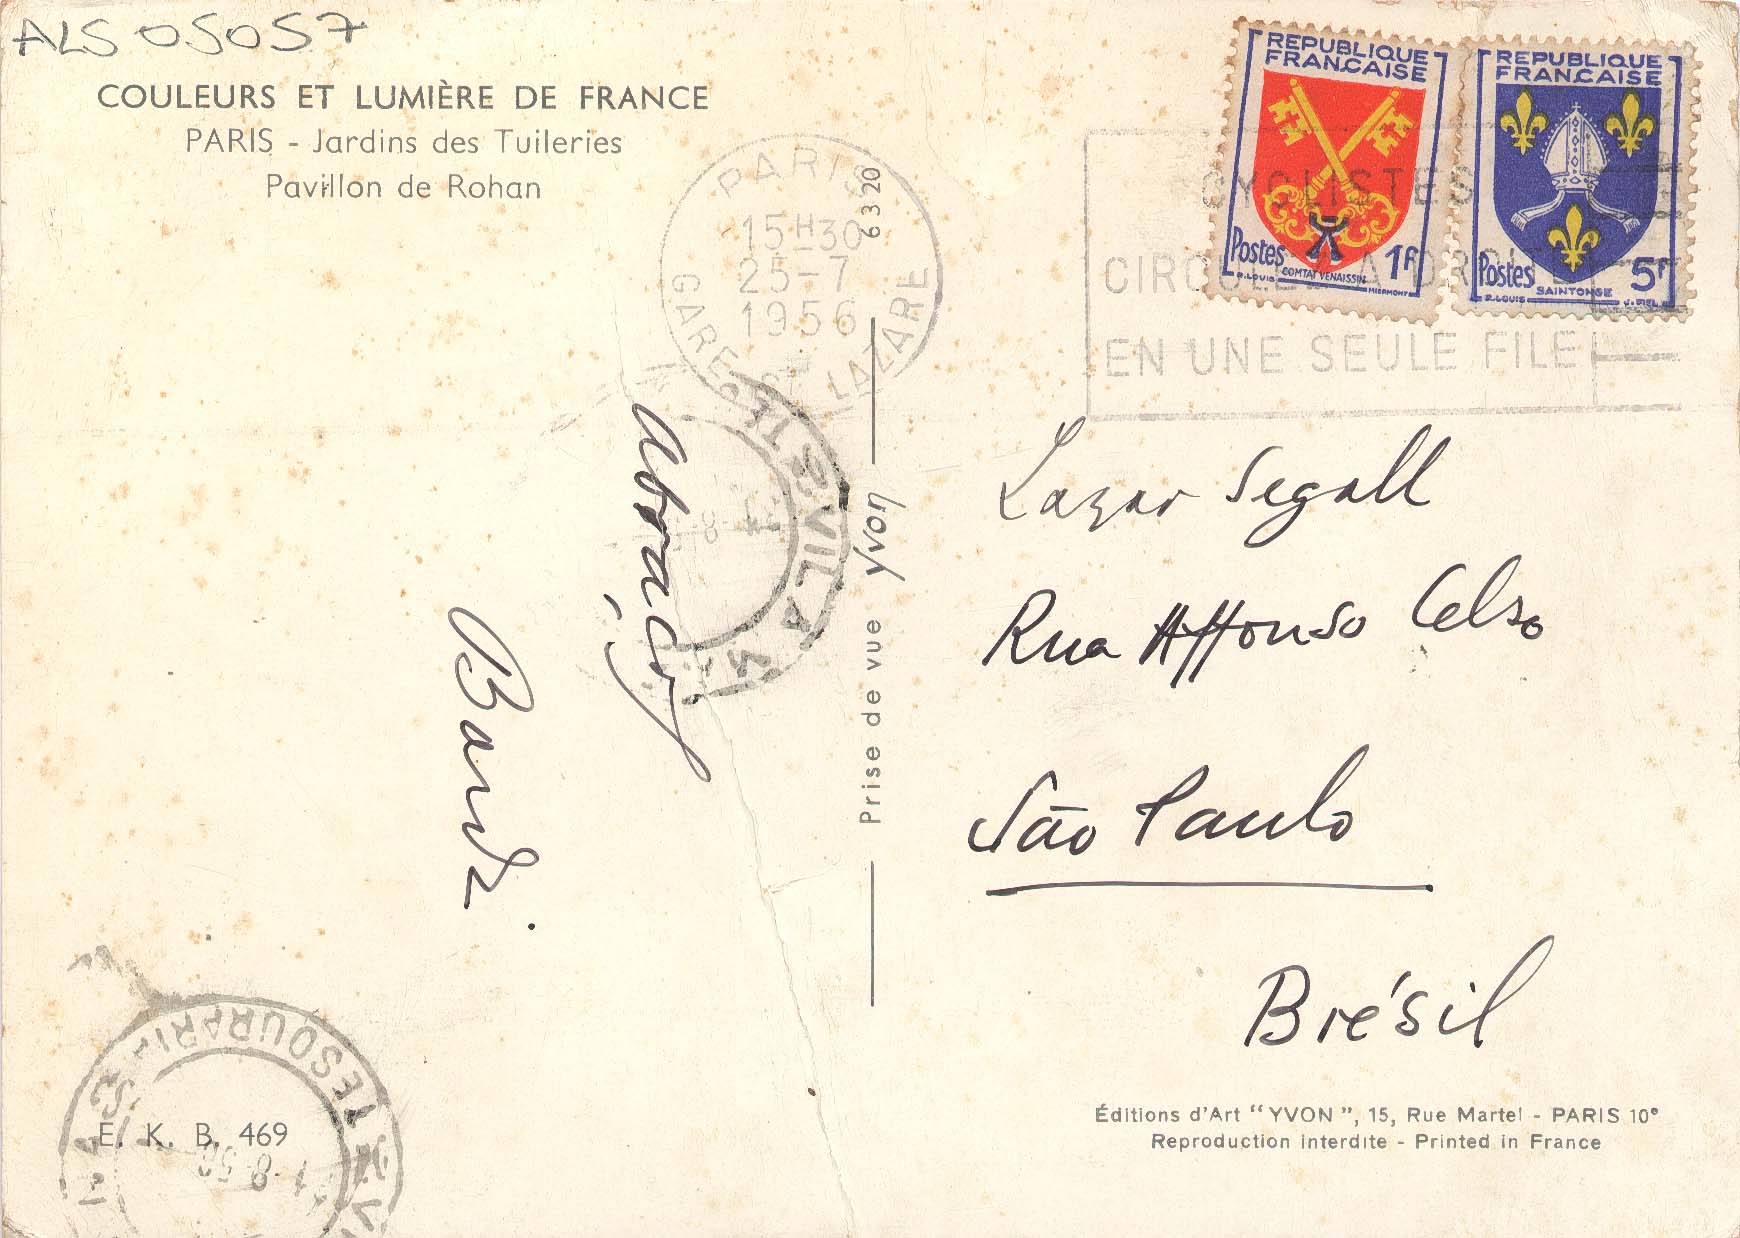 ALS 05057
COULEURS ET LUMIÈRE DE FRANCE
PARIS - Jardins des Tuileries
Pavillon de Rohan
PARIS
15H30
25-7
1956
GARE ST LAZARE
6320
CYCLISTES
CIRCULEZ A DROITE
EN UNE SEULE FILE
REPUBLIQUE
FRANÇAISE
Postes 1F
R. LOUIS COMTAT VENAISSIN MIERMONT
REPUBLIQUE
FRANÇAISE
Postes 5F
R. LOUIS SAINTONGE J. PIEL
abraços
Bardi.
VILA M
Prise de vue yvon
Lazar Segall
Rua Affonso Celso
São Paulo
Brésil
TESOURARI
E. K. B. 469
Éditions d'Art "YVON", 15, Rue Martel - PARIS 10e
Reproduction interdite - Printed in France